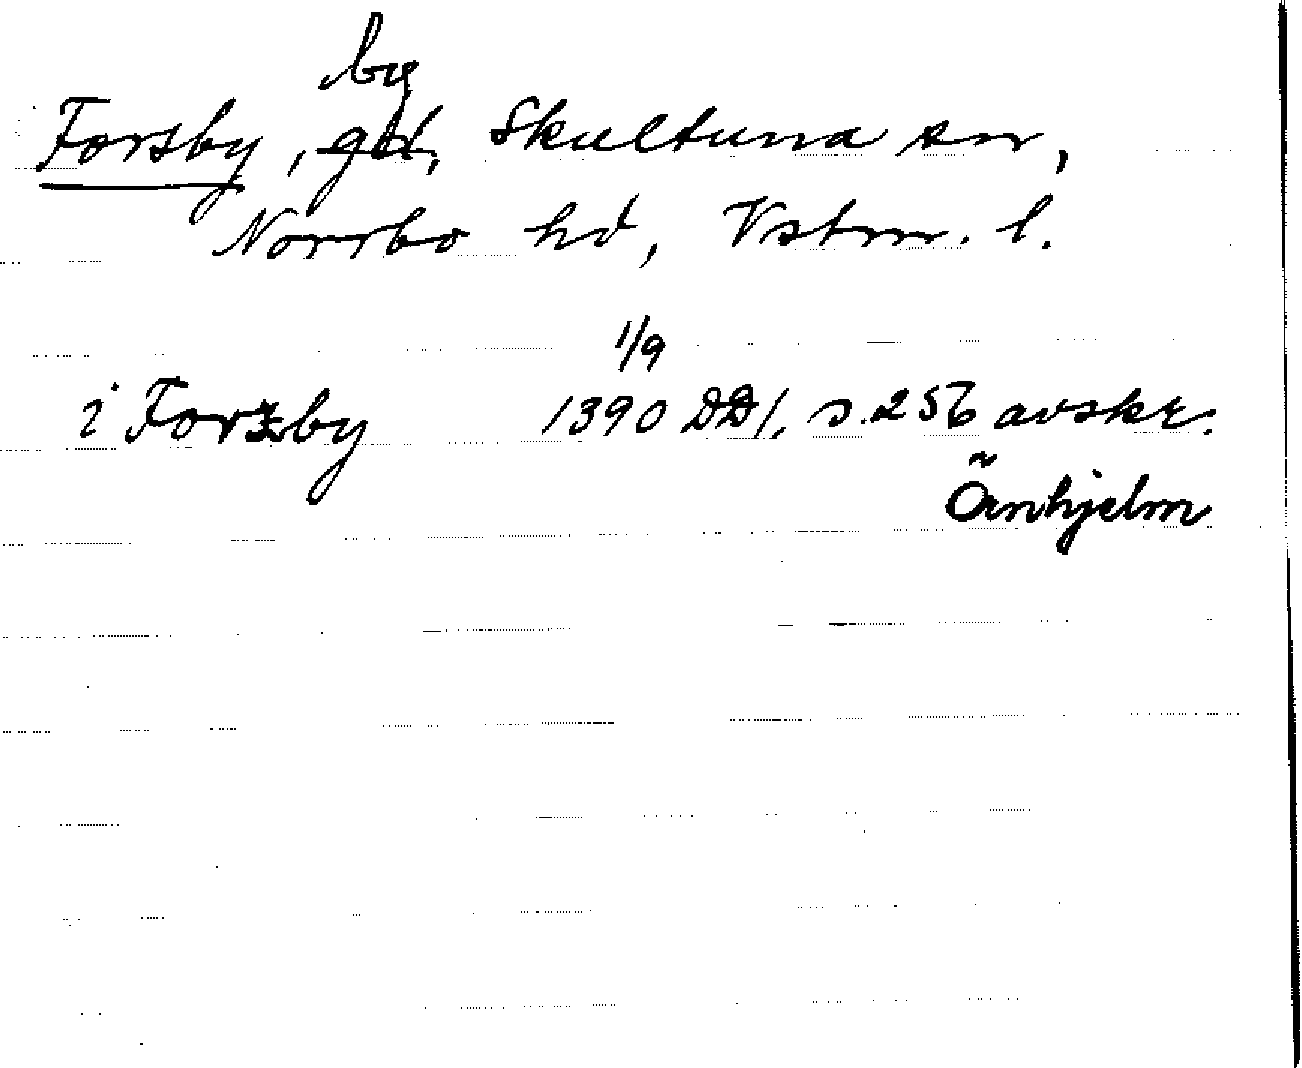 by
Forsby, gd, Skultuna sn,
Norrbo hd, Vstm. l.
1/9
i Forzby 1390 DD1, s. 256 avskr.
Örnhjelm